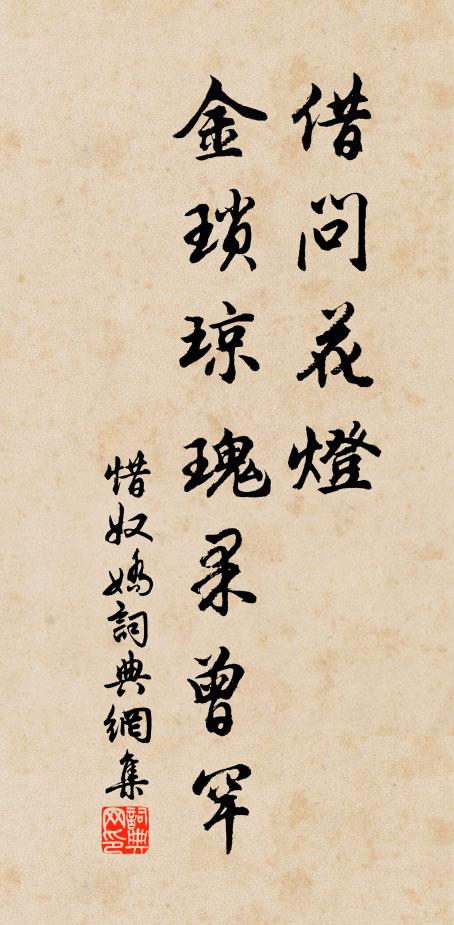 借問花燈
金瑣琼瑰果曾罕
惜奴嬌詞典網集
詞典網印